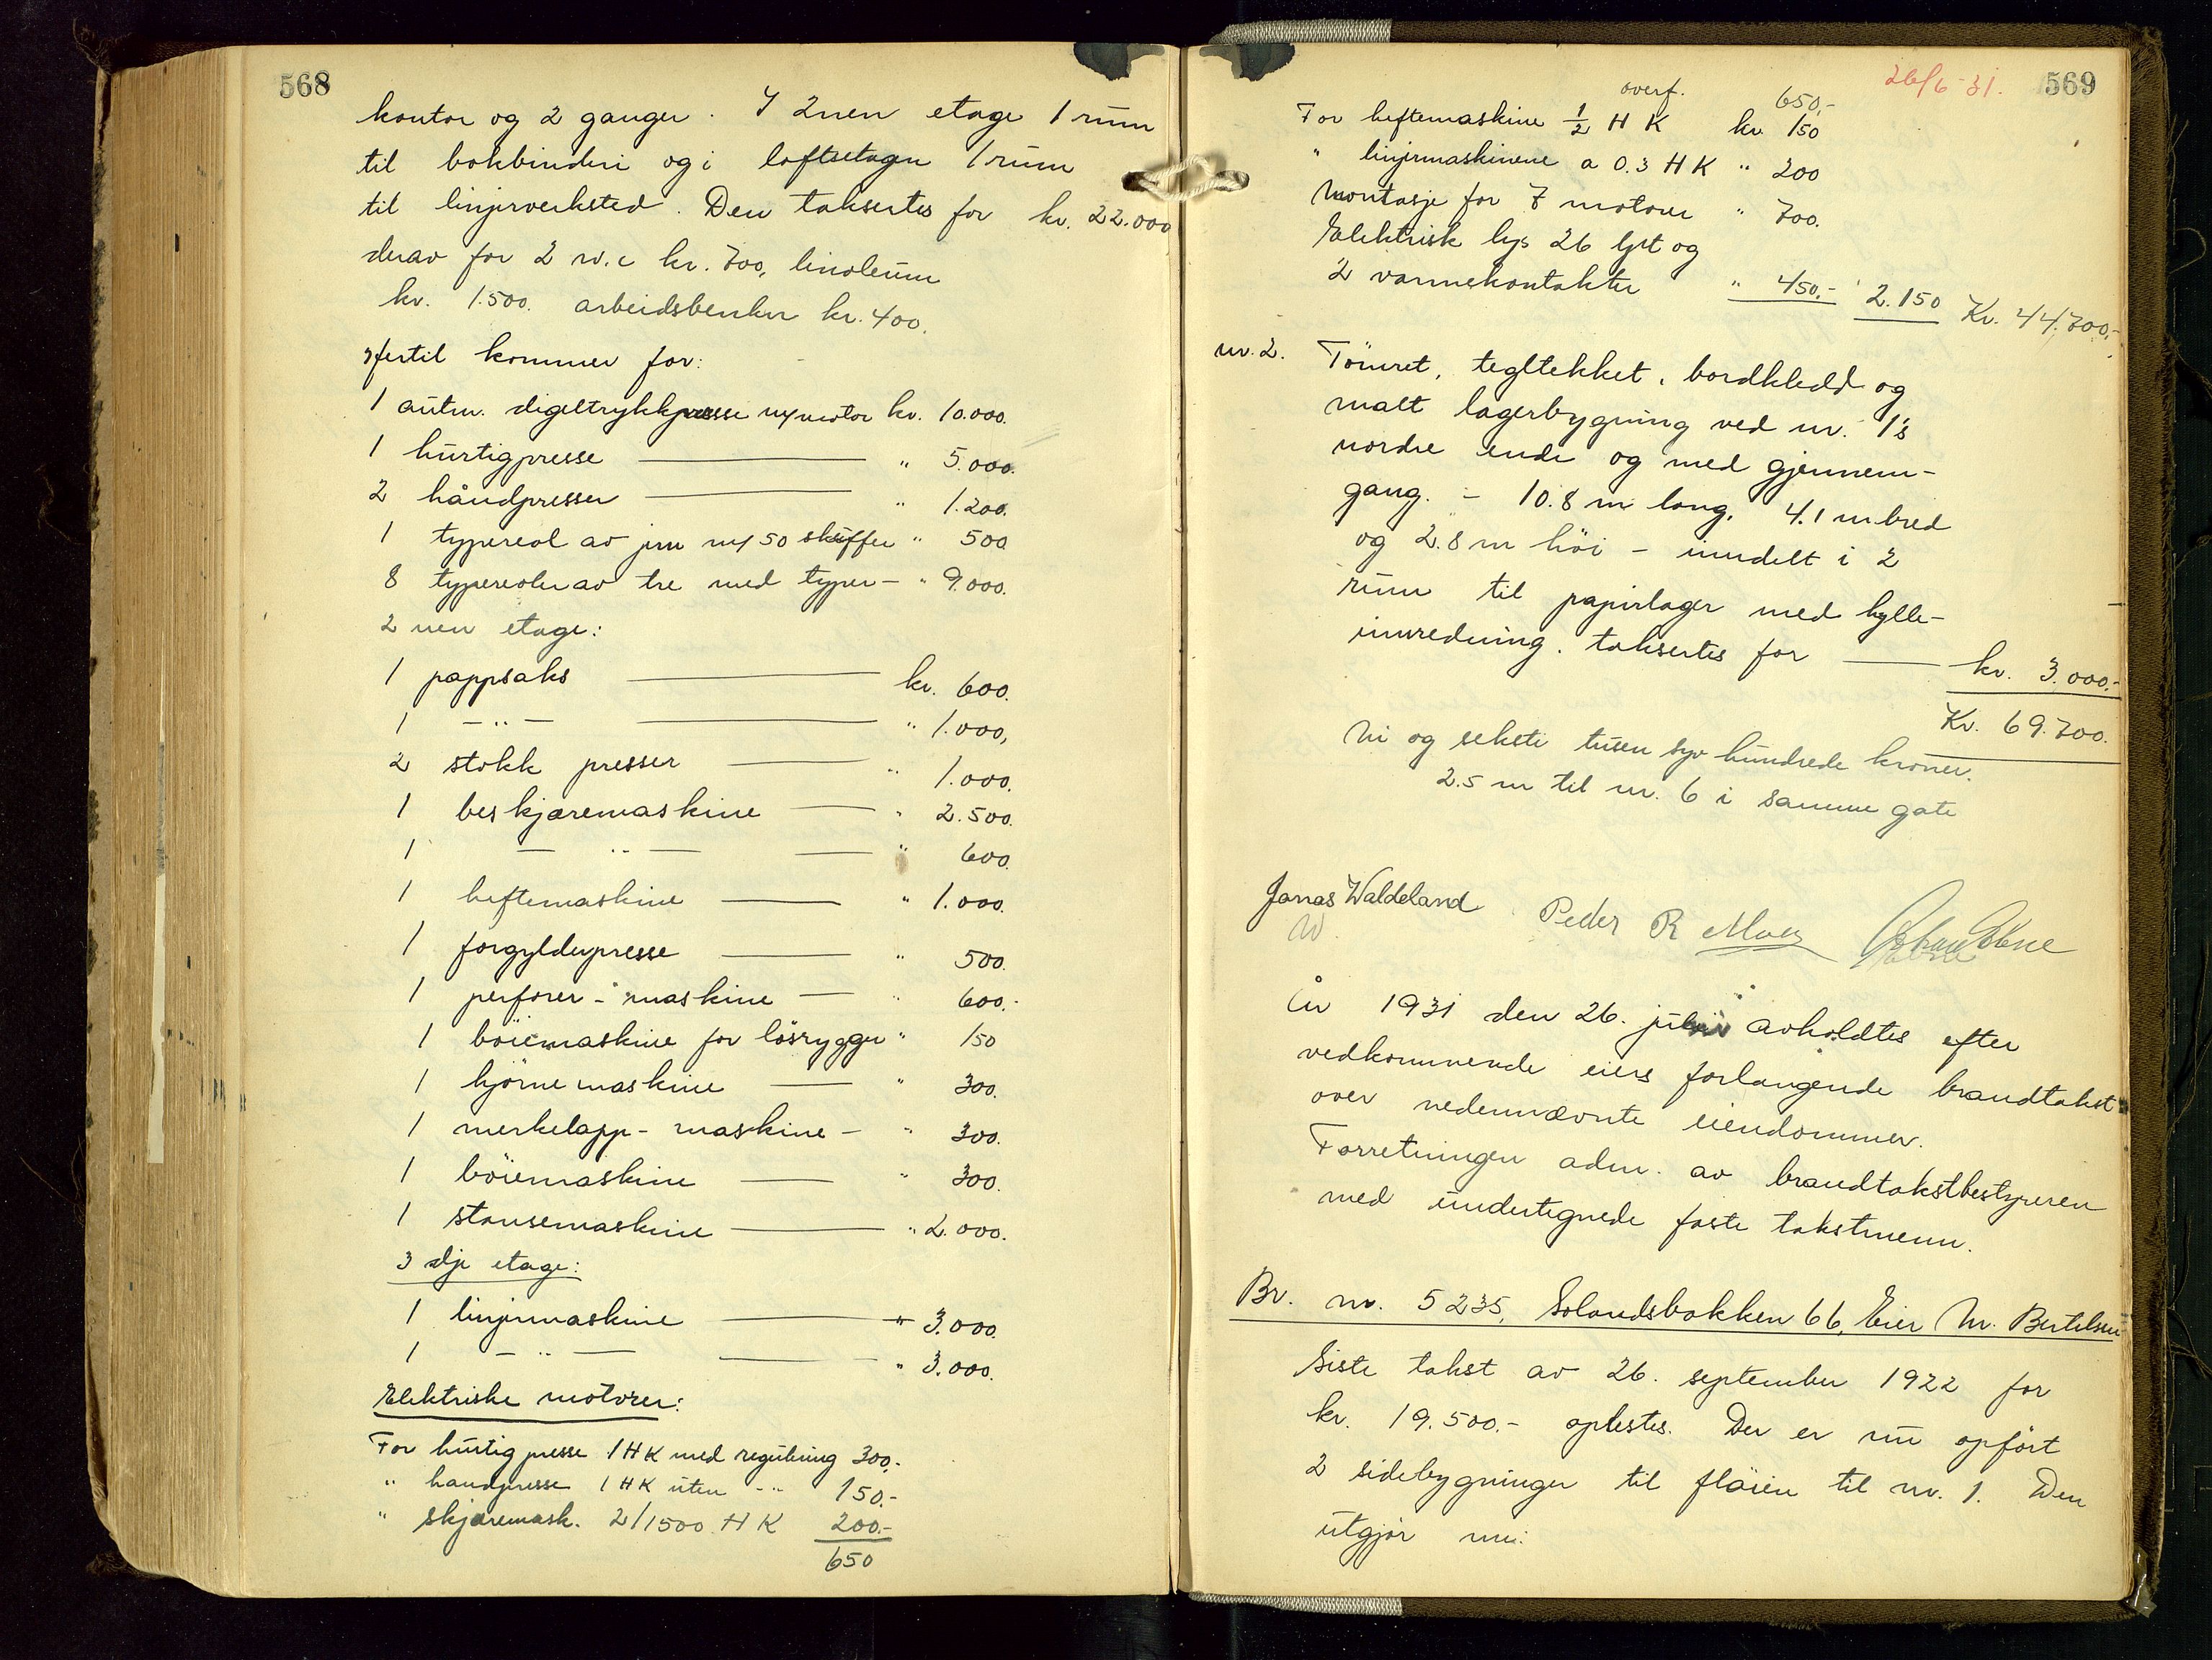 568
kontor og 2 ganger. I 2nen etage 1 rum
til bokbinderi og i loftsetagen 1 rum
til linjerverksted. Den taksertes for kr. 22.000
derav for 2 w.c kr. 700, linoleum
kr. 1.500. arbeidsbenker kr. 400.
Hertil kommer for:
1 autm. digeltrykkpresse m/motor kr. 10.000.
1 hurtigpresse — " 5.000.
2 håndpresser — " 1.200.
1 typereol av jern m/50 skuffer " 500
8 typereoler av tre med typer — " 9.000.
2 nen etage:
1 pappsaks — kr. 600.
1 — " — — " 1.000,
2 stokk presser — " 1.000.
1 beskjæremaskine — " 2.500.
1 — " — — " 600.
1 heftemaskine — " 1.000.
1 forgylderpresse — " 500.
1 perforer-maskine — " 600.-
1 böiemaskine for lösrygger " 150
1 hjörnemaskine — " 300.
1 merkelapp-maskine — " 300.
1 böiemaskine — " 300.
1 stansemaskine — " 2.000.
3 dje etage:
1 linjermaskine — " 3.000.
1 — " — — " 3.000.
Elektriske motorer:
For hurtigpresse 1 HK med regulering 300,-
" handpresse 1 HK uten -"- 150.-
" skjæremask. 2/1500 HK 200.-
650
26/6-31. 569
overf. 650,-
For heftemaskine 1/2 HK kr. 150
" linjermaskinene a 0.3 HK " 200
Montasje for 7 motorer " 700.
Elektrisk lys 26 lpkt og
2 varmekontakter " 450.- 2.150 Kr. 44.700.-
nr. 2. Tömret, tegltekket, bordkledd og
malt lagerbygning ved nr. 1's
nordre ende og med gjennem-
gang. - 10.8 m lang, 4.1 m bred
og 2.8 m höi - inndelt i 2
rum til papirlager med hylle-
innredning. taksertes for — kr. 3.000.-
Kr. 69.700.
Ni og seksti tusen syv hundrede kroner.
2.5 m til nr. 6 i samme gate
Jonas Waldeland Peder R Moen
W.
År 1931 den 26. juni avholdtes efter
vedkommende eiers forlangende brandtakst
over nedennævnte eiendommer.
Forretningen adm. av brandtakstbestyreren
med undertegnede faste takstmenn.
Br. nr. 5235, Solandsbakken 66, Eier M. Bertelsen
Siste takst av 26. september 1922 for
kr. 19.500.- oplestes. Der er nu opfört
2 sidebygninger til flöien til nr. 1. Den
utgjör nu: